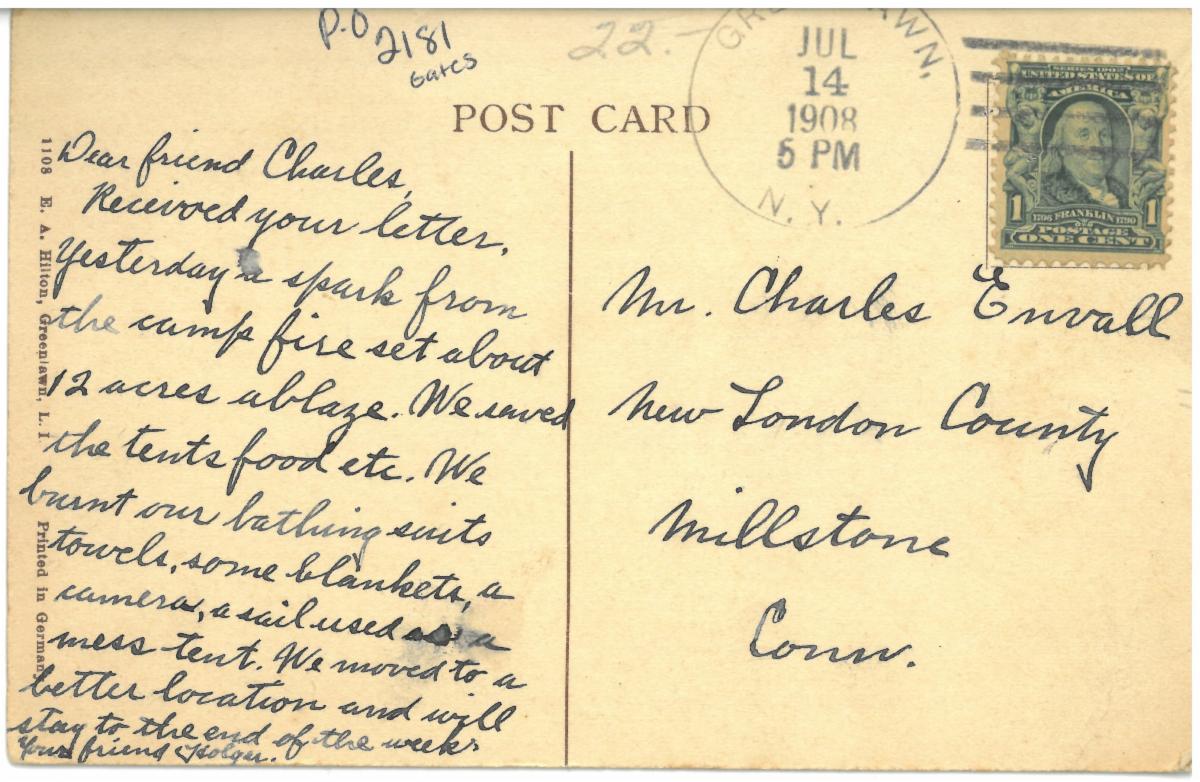 P.O
2181
Gates
22.-
POST CARD
JUL
14
1908
5 PM
N. Y.
SERIES 1902
UNITED STATES OF
AMERICA
1 1706 FRANKLIN 1790 1
POSTAGE
ONE CENT
Dear friend Charles,
Received your letter.
Yesterday a spark from
the camp fire set about
12 acres ablaze. We saved
the tents food etc. We
burnt our bathing suits
towels, some blankets, a
camera, a sail used as a
mess tent. We moved to a
better location and will
stay to the end of the week.
Your friend Holger.
Mr. Charles Envall
New London County
Millstone
Conn.
1108 E. A. Hilton, Greenlawn, L. I. Printed in Germany